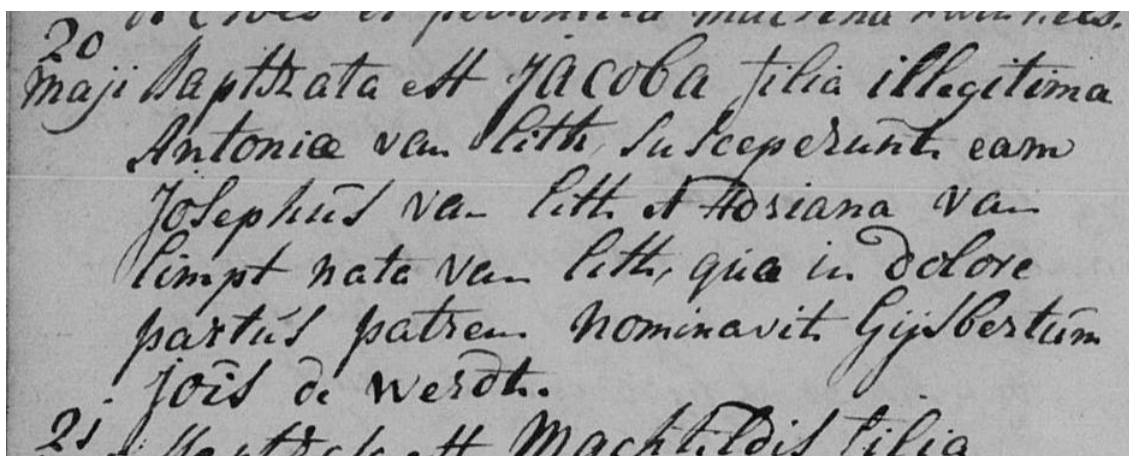 et petronilla
20
maji Baptizata est Jacoba filia illegitima
Antoniæ van lith, susceperunt eam
Josephus van lith et Adriana van
limpt nata van lith, quæ in dolore
partus patrem nominavit Gijsbertum
joîs de werdt.
21 est Machtildis filia